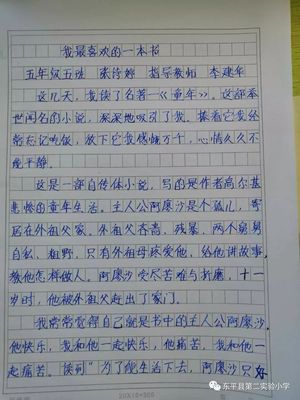 我最喜欢的一本书
五年级五班 张诗婷 指导教师 李建华
这几天,我读了名著《童年》。这部举
世闻名的小说,深深地吸引了我。捧着它我经
常忘记吃饭,放下它我感触万千,心情久久不
能平静。
这是一部自传体小说,写的是作者高尔基
悲惨的童年生活。主人公阿廖沙是个孤儿,寄
居在外祖父家。外祖父吝啬、残暴,两个舅舅
自私、粗野,只有外祖母疼爱他,给他讲故事,
教他怎样做人。阿廖沙受尽苦难与折磨,十一
岁时,他被外祖父赶出了家门。
我常常觉得自己就是书中的主人公阿廖沙,
他快乐,我和他一起快乐,他痛苦,我和他一
起痛苦。
为了能生活下去,阿廖沙只好
20X15=300
东平县第二实验小学